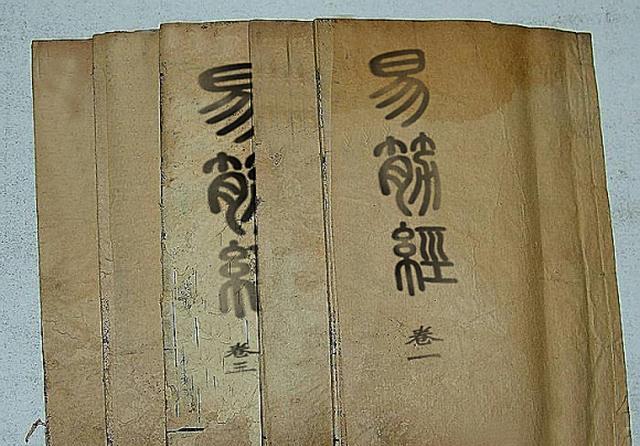 易筋經
卷一
易筋經
卷三